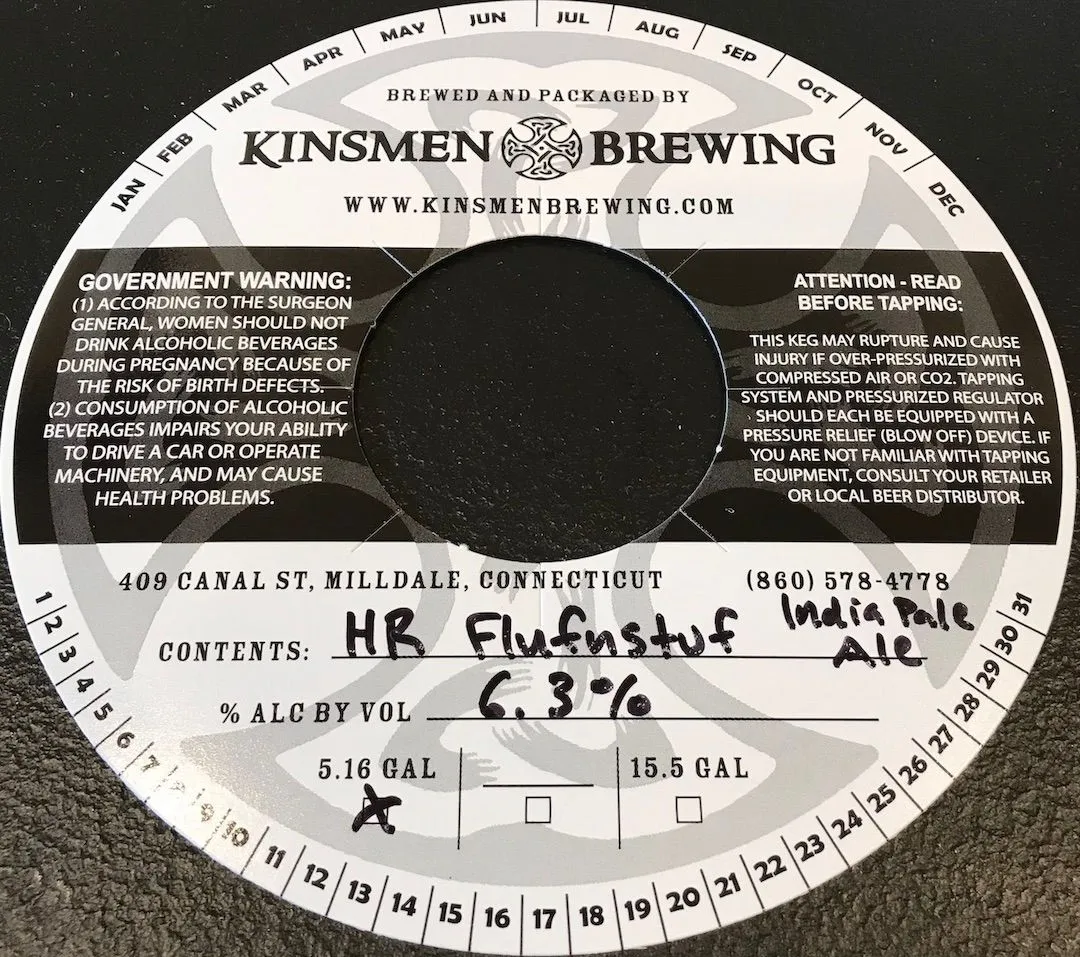 JAN FEB MAR APR MAY JUN JUL AUG SEP OCT NOV DEC
BREWED AND PACKAGED BY
KINSMEN BREWING
WWW.KINSMENBREWING.COM
GOVERNMENT WARNING:
(1) ACCORDING TO THE SURGEON
GENERAL, WOMEN SHOULD NOT
DRINK ALCOHOLIC BEVERAGES
DURING PREGNANCY BECAUSE OF
THE RISK OF BIRTH DEFECTS.
(2) CONSUMPTION OF ALCOHOLIC
BEVERAGES IMPAIRS YOUR ABILITY
TO DRIVE A CAR OR OPERATE
MACHINERY, AND MAY CAUSE
HEALTH PROBLEMS.
ATTENTION - READ
BEFORE TAPPING:
THIS KEG MAY RUPTURE AND CAUSE
INJURY IF OVER-PRESSURIZED WITH
COMPRESSED AIR OR CO2. TAPPING
SYSTEM AND PRESSURIZED REGULATOR
SHOULD EACH BE EQUIPPED WITH A
PRESSURE RELIEF (BLOW OFF) DEVICE. IF
YOU ARE NOT FAMILIAR WITH TAPPING
EQUIPMENT, CONSULT YOUR RETAILER
OR LOCAL BEER DISTRIBUTOR.
409 CANAL ST, MILLDALE, CONNECTICUT (860) 578-4778
CONTENTS: HR Flufnstuf India Pale
Ale
% ALC BY VOL 6.3%
5.16 GAL 15.5 GAL
X
1 2 3 4 5 6 7 8 9 10 11 12 13 14 15 16 17 18 19 20 21 22 23 24 25 26 27 28 29 30 31